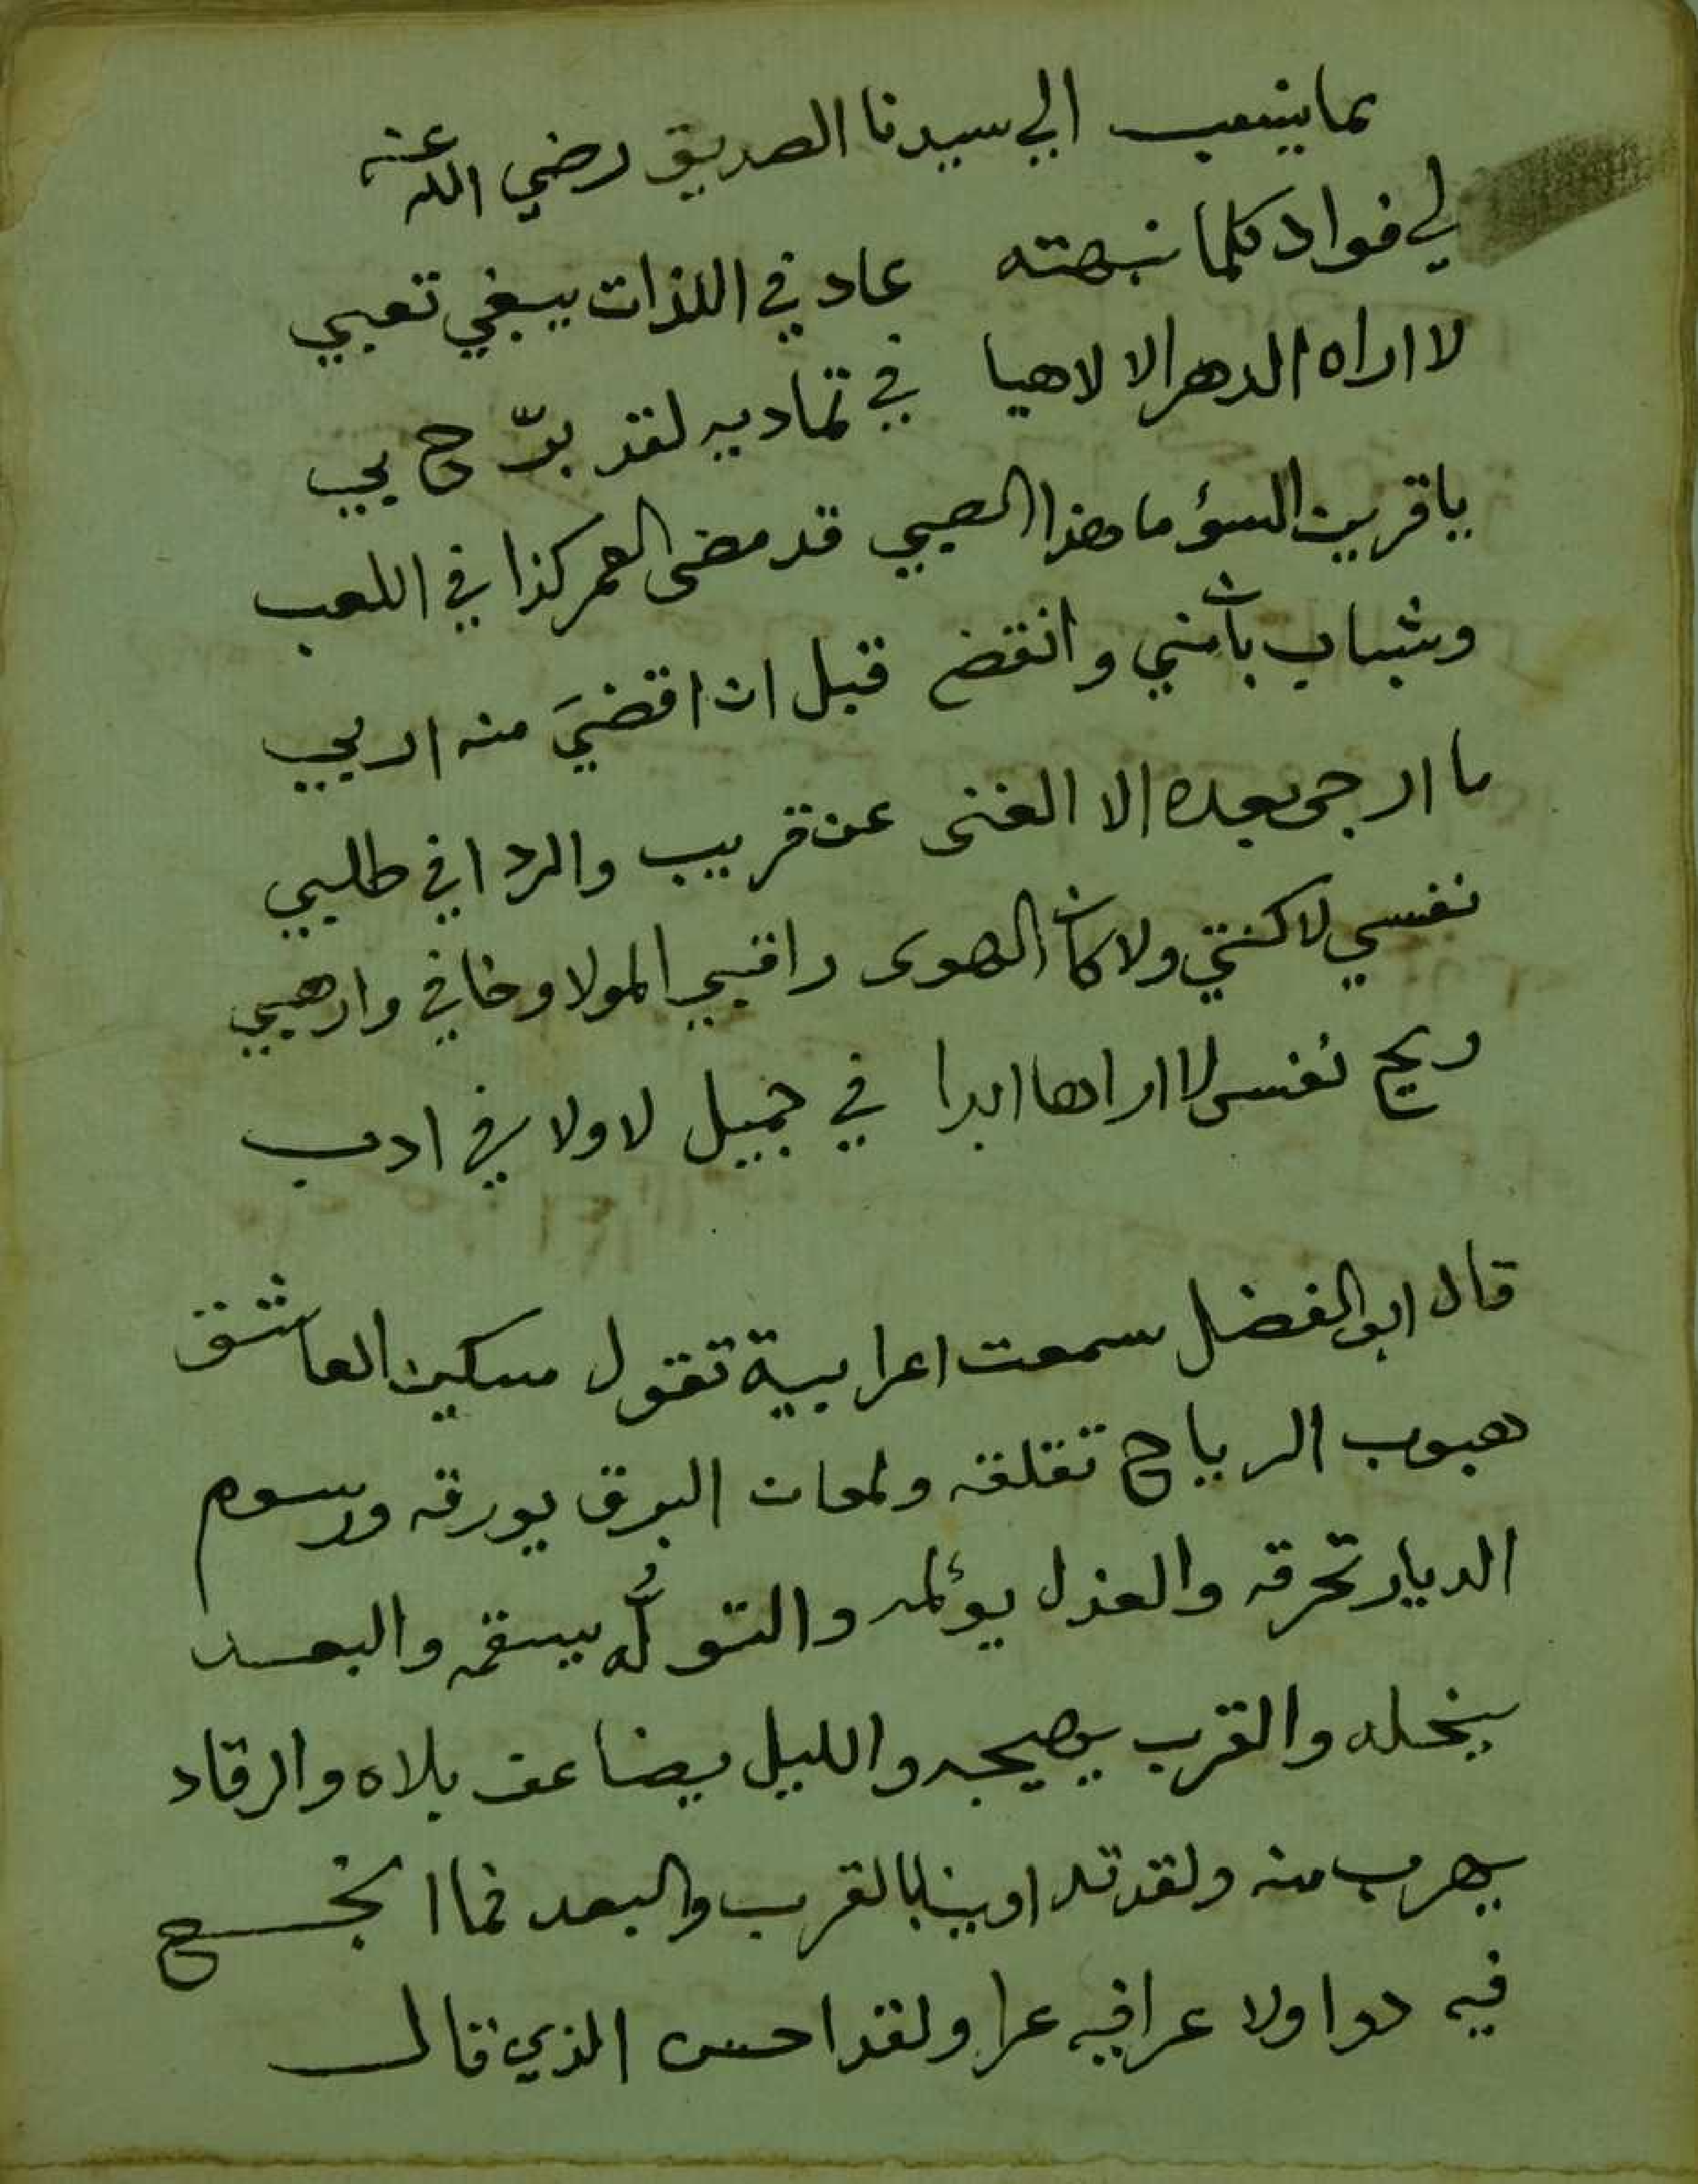 مما ينسب الي سيدنا الصديق رضي الله عنه
لي فواد كلما نبهته عاد في اللذات يبغي تعبي
لا اراه الدهر الا لاهيا في تماديه لقد برّح بي
يا قرين السؤ ما هذا الصبي قد مضى العمر كذا في اللعب
وشباب بان مني وانقضى قبل ان اقضيَ منه اربي
ما ارجى بعده الا الفنى عن قريب والردا في طلبي
نفسي لا كنتي ولا كان الهوى راقبي المولا وخافي وارهبي
ويح نفسى لا اراها ابدا في جميل لا ولا في ادب
قال ابو الفضل سمعت اعرابية تقول مسكين العاشق
هبوب الرياح تقلقه ولمعان البرق يورقه ورسوم
الديار تحرقه والعذل يؤلمه والتولُّه يسقمه والبعد
ينحله والقرب يهيجه والليل يضاعف بلاه والرقاد
يهرب منه ولقد تداوينا بالقرب والبعد فما انجح
فيه دوا ولا عرا فيه عرا ولقد احسن الذي قال